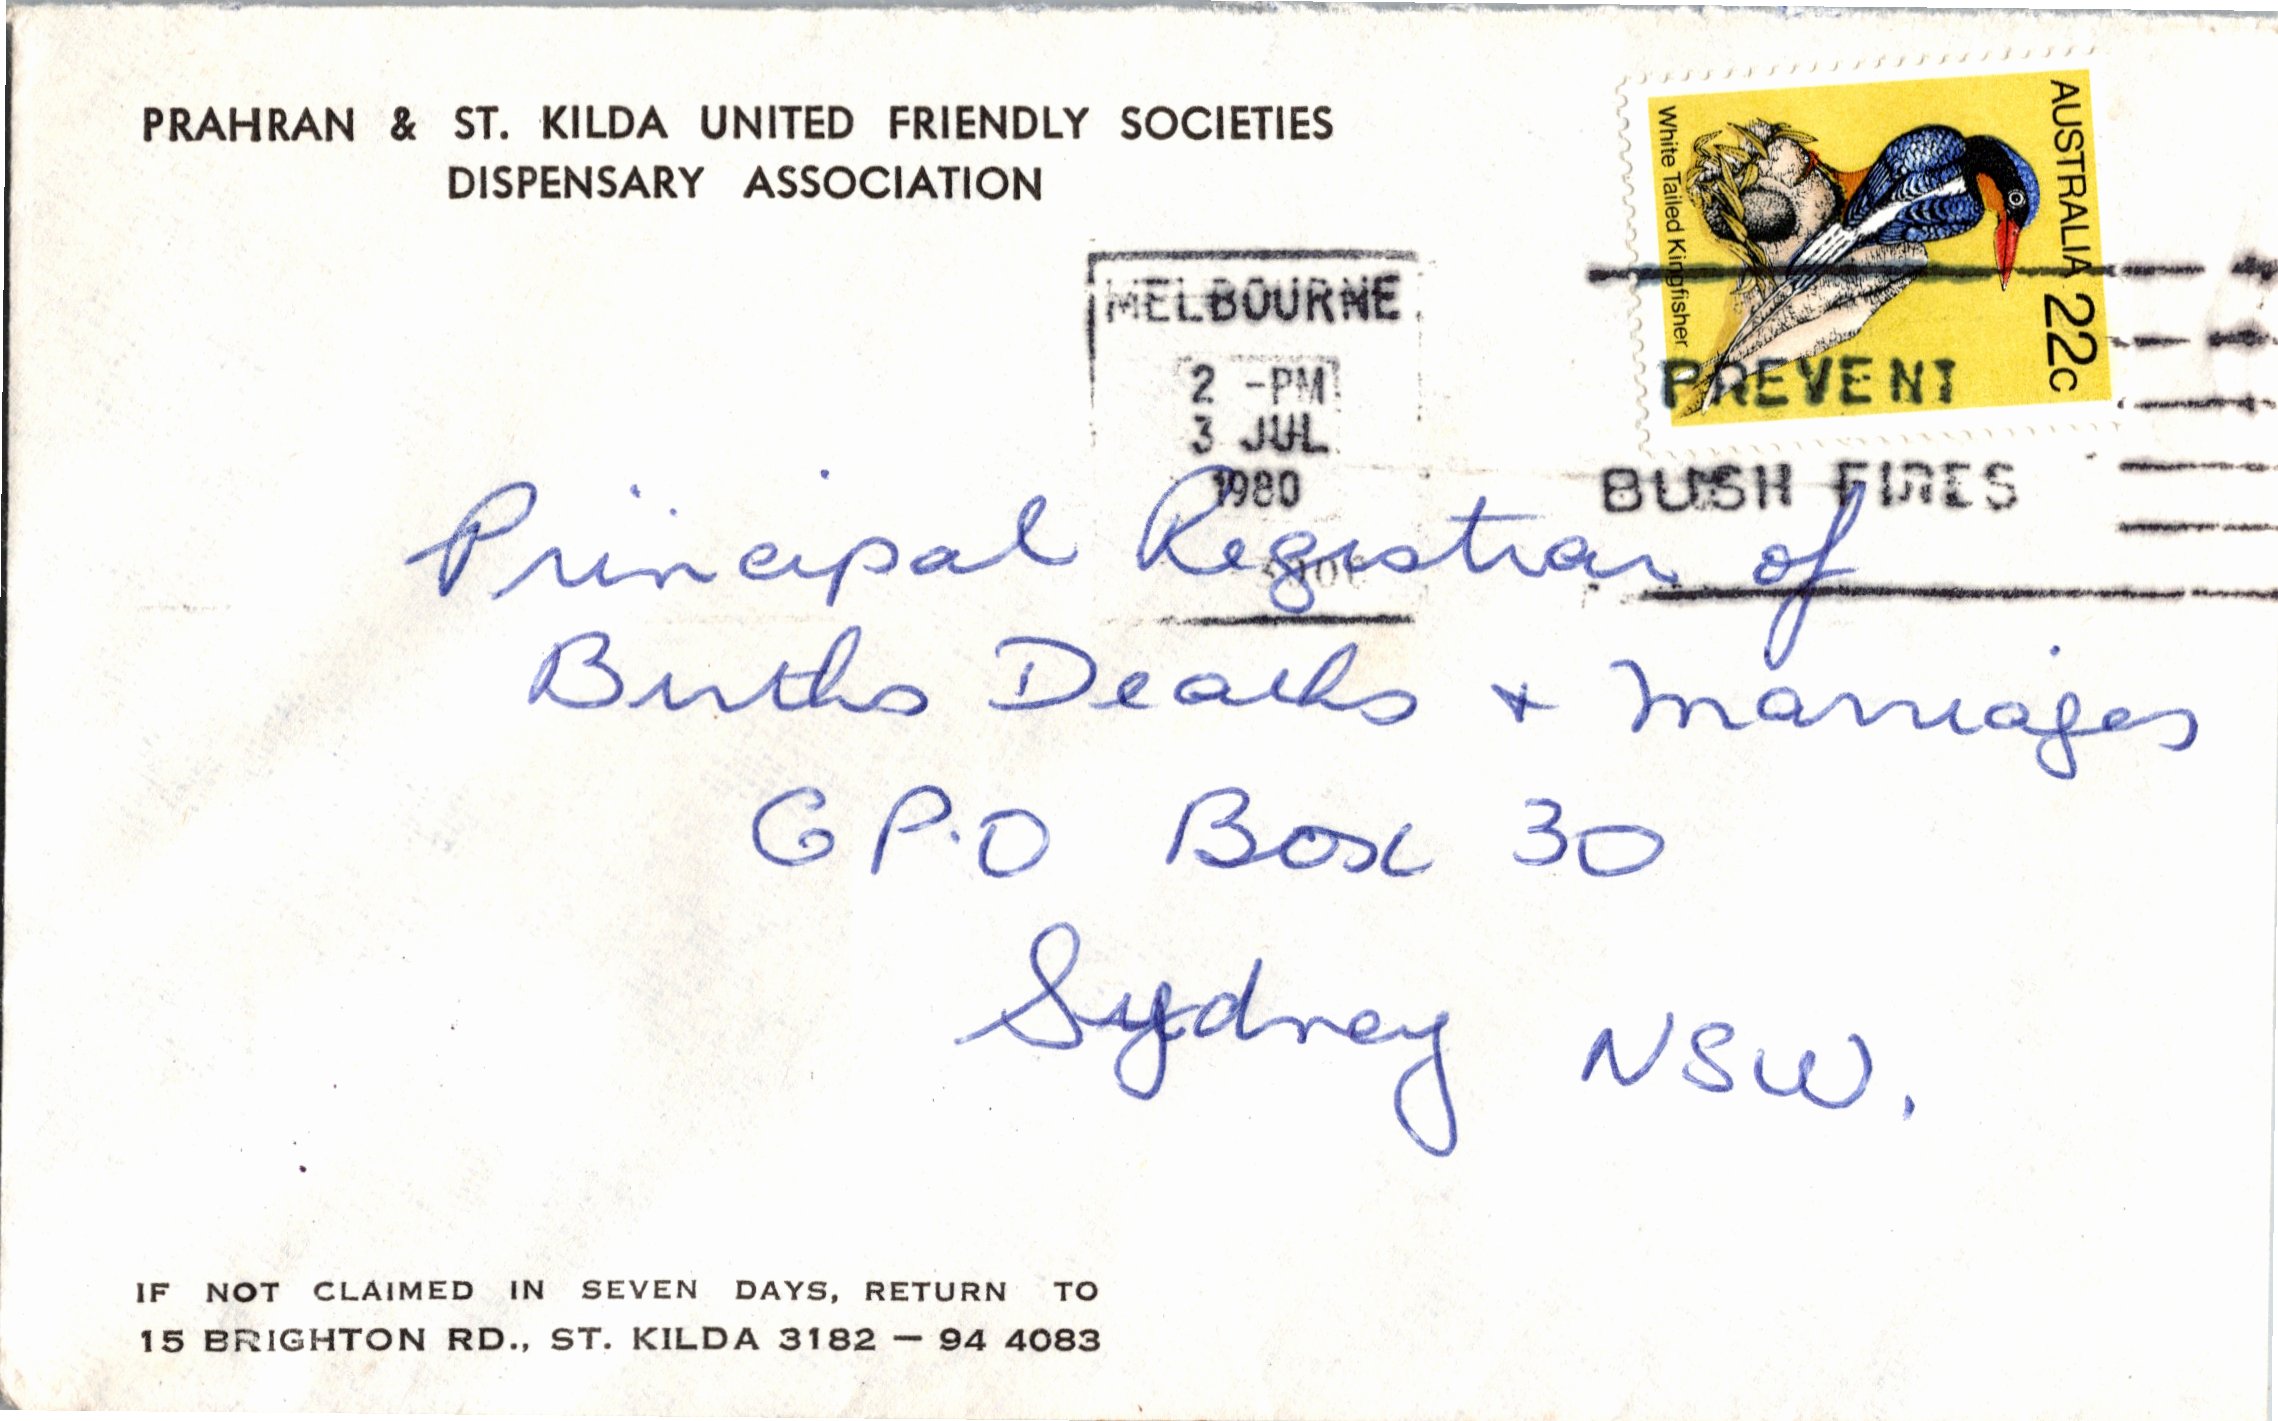 PRAHRAN & ST. KILDA UNITED FRIENDLY SOCIETIES
DISPENSARY ASSOCIATION
AUSTRALIA 22c
White Tailed Kingfisher
MELBOURNE
2 -PM
3 JUL
1980
PREVENT
BUSH FIRES
Principal Registrar of
Births Deaths + Marriages
G P.O Box 30
Sydney NSW.
IF NOT CLAIMED IN SEVEN DAYS, RETURN TO
15 BRIGHTON RD., ST. KILDA 3182 — 94 4083